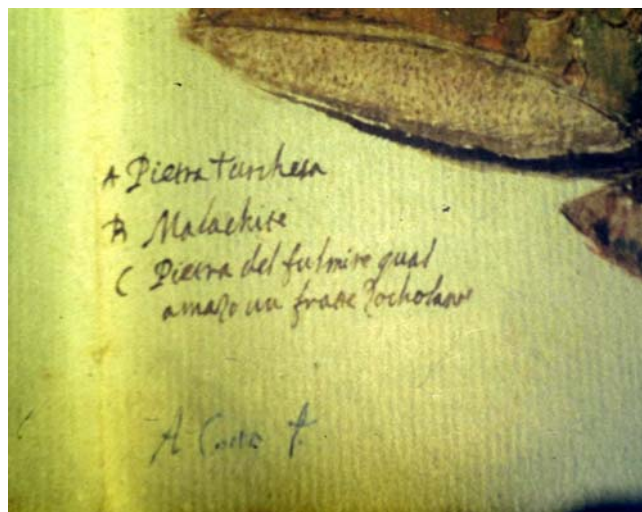 A Pietra turchesa
B Malachite
C Pietra del fulmine qual
amazo un frate Zocholante
A